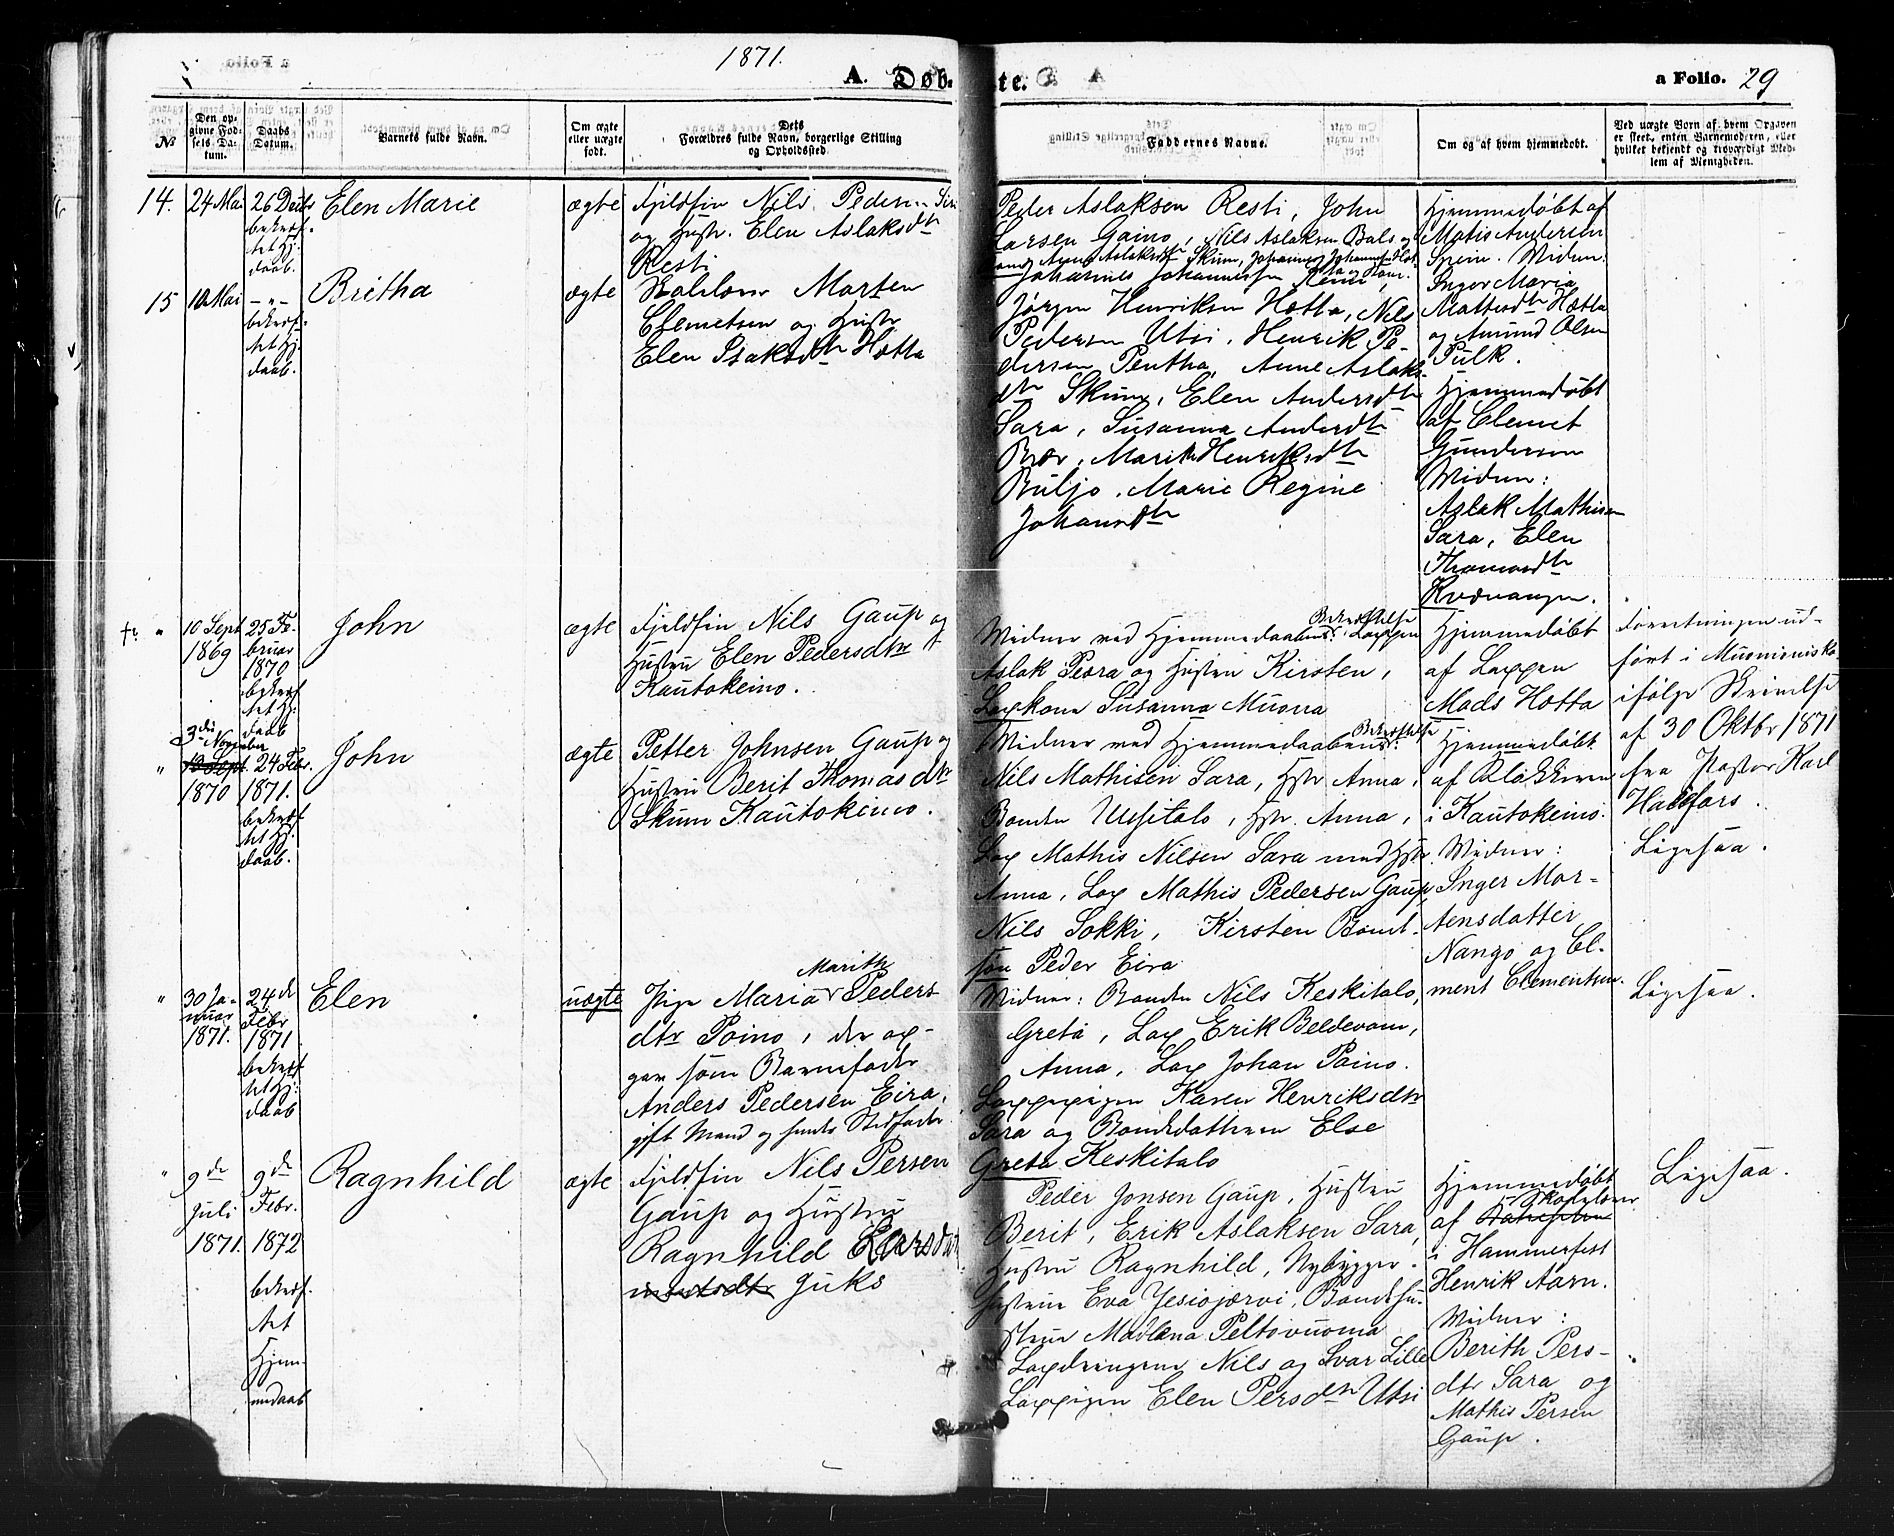 1871.
A. Døb-
te.
a Folio. 29
№
Den op-
givne Fød-
sels Da-
tum.
Daabs
Datum.
Barnets fulde Navn.
Om ægte
eller uægte
født.
Dets
Forældres fulde Navn, borgerlige Stilling
og Opholdssted.
Faddernes Navne.
Om og af hvem hjemmedøbt.
Ved uægte Børn af hvem Opgaven
er skeet, enten Barnemoderen, eller
hvilket bekjendt og troværdigt Med-
lem af Menigheden.
14.
24 Mai
26 Decbr
bekræf-
tet Hj.
daab.
Elen Marie
ægte
Fjeldfin Nils Pedersen Siri
og Hustr. Elen Aslaksdtr
Resti
Peder Aslaksen Resti, John
Larsen Gaino, Nils Aslaksen Bals og
Johannes Johannesen
Hjemmedøbt af
Matis Andersen
Spein. Widner:
Inger Maria
Mattisdtr Hætta
og Amund Olsen
Pulk.
15
10 Mai
— " —
bekræf-
tet Hj.
daab.
Britha
ægte
Morten
Clemetsen og Hustr
Elen Isaksdtr Hætta
Jørgen Henriksen Hætta, Nils
Pedersen Utsi, Henrik Pe-
dersen Pentha, Anne Aslaks-
dtr Skum, Elen Andersdtr
Sara, Susanna Andersdtr
Bær, Marith Henriksdtr
Buljo, Marie Regine
Johansdtr
Hjemmedøbt
af Clemet
Gundersen
Widner:
Aslak Mathisen
Sara, Elen
Thomasdtr
Kvænangen.
"
10 Sept
1869
25 Fe-
bruar
1870
bekræf-
tet Hj.
daab
John
ægte
Fjeldfin Nils Gaup og
Hustru Elen Pedersdtr
Kautokeino.
Widner ved Hjemmedaabens Bekræftelse: Lappen
Aslak Peðra og Hustru Kirsten,
Lapkone Susanna Muorra
Hjemmedøbt
af Lappen
Mads Hætta
Forretningen ud-
ført i Muonioniska
ifølge Skrivelse
af 30 Oktbr 1871
fra Pastor Karl
Hallfors.
"
3die November
13 Sept.
1870
24 Febr.
1871.
bekræf-
tet Hj.
daab.
John
ægte
Petter Johnsen Gaup og
Hustru Berit Thomasdtr
Skum Kautokeino.
Widner ved Hjemmedaabens Bekræftelse:
Nils Mathisen Sara, Hstr Anna,
Bonden Uusitalo, Hstr. Anna,
Lap Mathis Nilsen Sara med Hstr.
Anna, Lap Mathis Pedersen Gaup,
Nils Sokki, Kirsten Bond-
søn Peder Eira
Hjemmedøbt
af Klokkeren
i Kautokeino.
Widner:
Inger Mor-
tensdatter
Nango og Cl-
ment Clementsen.
Ligesaa.
"
30 Ja-
nuar
1871.
24de
Febr
1871
bekræf-
tet Hj:
daab
Elen
uægte
Pige Maria Marith Peders
dtr Poino, der op-
gav som Barnefader
Anders Pedersen Eira,
gift Mand og hendes Stedfader
Widner: Bonden Nils Keskitalo,
Greta, Lap Erik Beldevom,
Anna, Lap Johan Poino.
Lappepigen Karen Henriksdtr
Sara og Bondedatteren Else
Greta Keskitalo
Ligesaa.
"
9de
Juli
1871.
9de
Febr.
1872
bekræf-
tet
Hjem-
medaab
Ragnhild
ægte
Fjeldfin Nils Persen
Gaup og Hustru
Ragnhild Larsdtr
Juks
Peder Jonsen Gaup, Hustru
Berit, Erik Aslaksen Sara,
Hustru Ragnhild, Nybygger-
hustrue Eva Jesiojærvi, Bondehu-
strue Madlena Peltovuoma
Lapdrengene Nils og Ivar Lille
Lappigen Elen Persdtr Utsi
Hjemmedøbt
af Skolelærer
i Hammerfest
Henrik Aarn.
Widner:
Berith Pers-
dtr Sara og
Mathis Persen
Gaup.
Ligesaa.